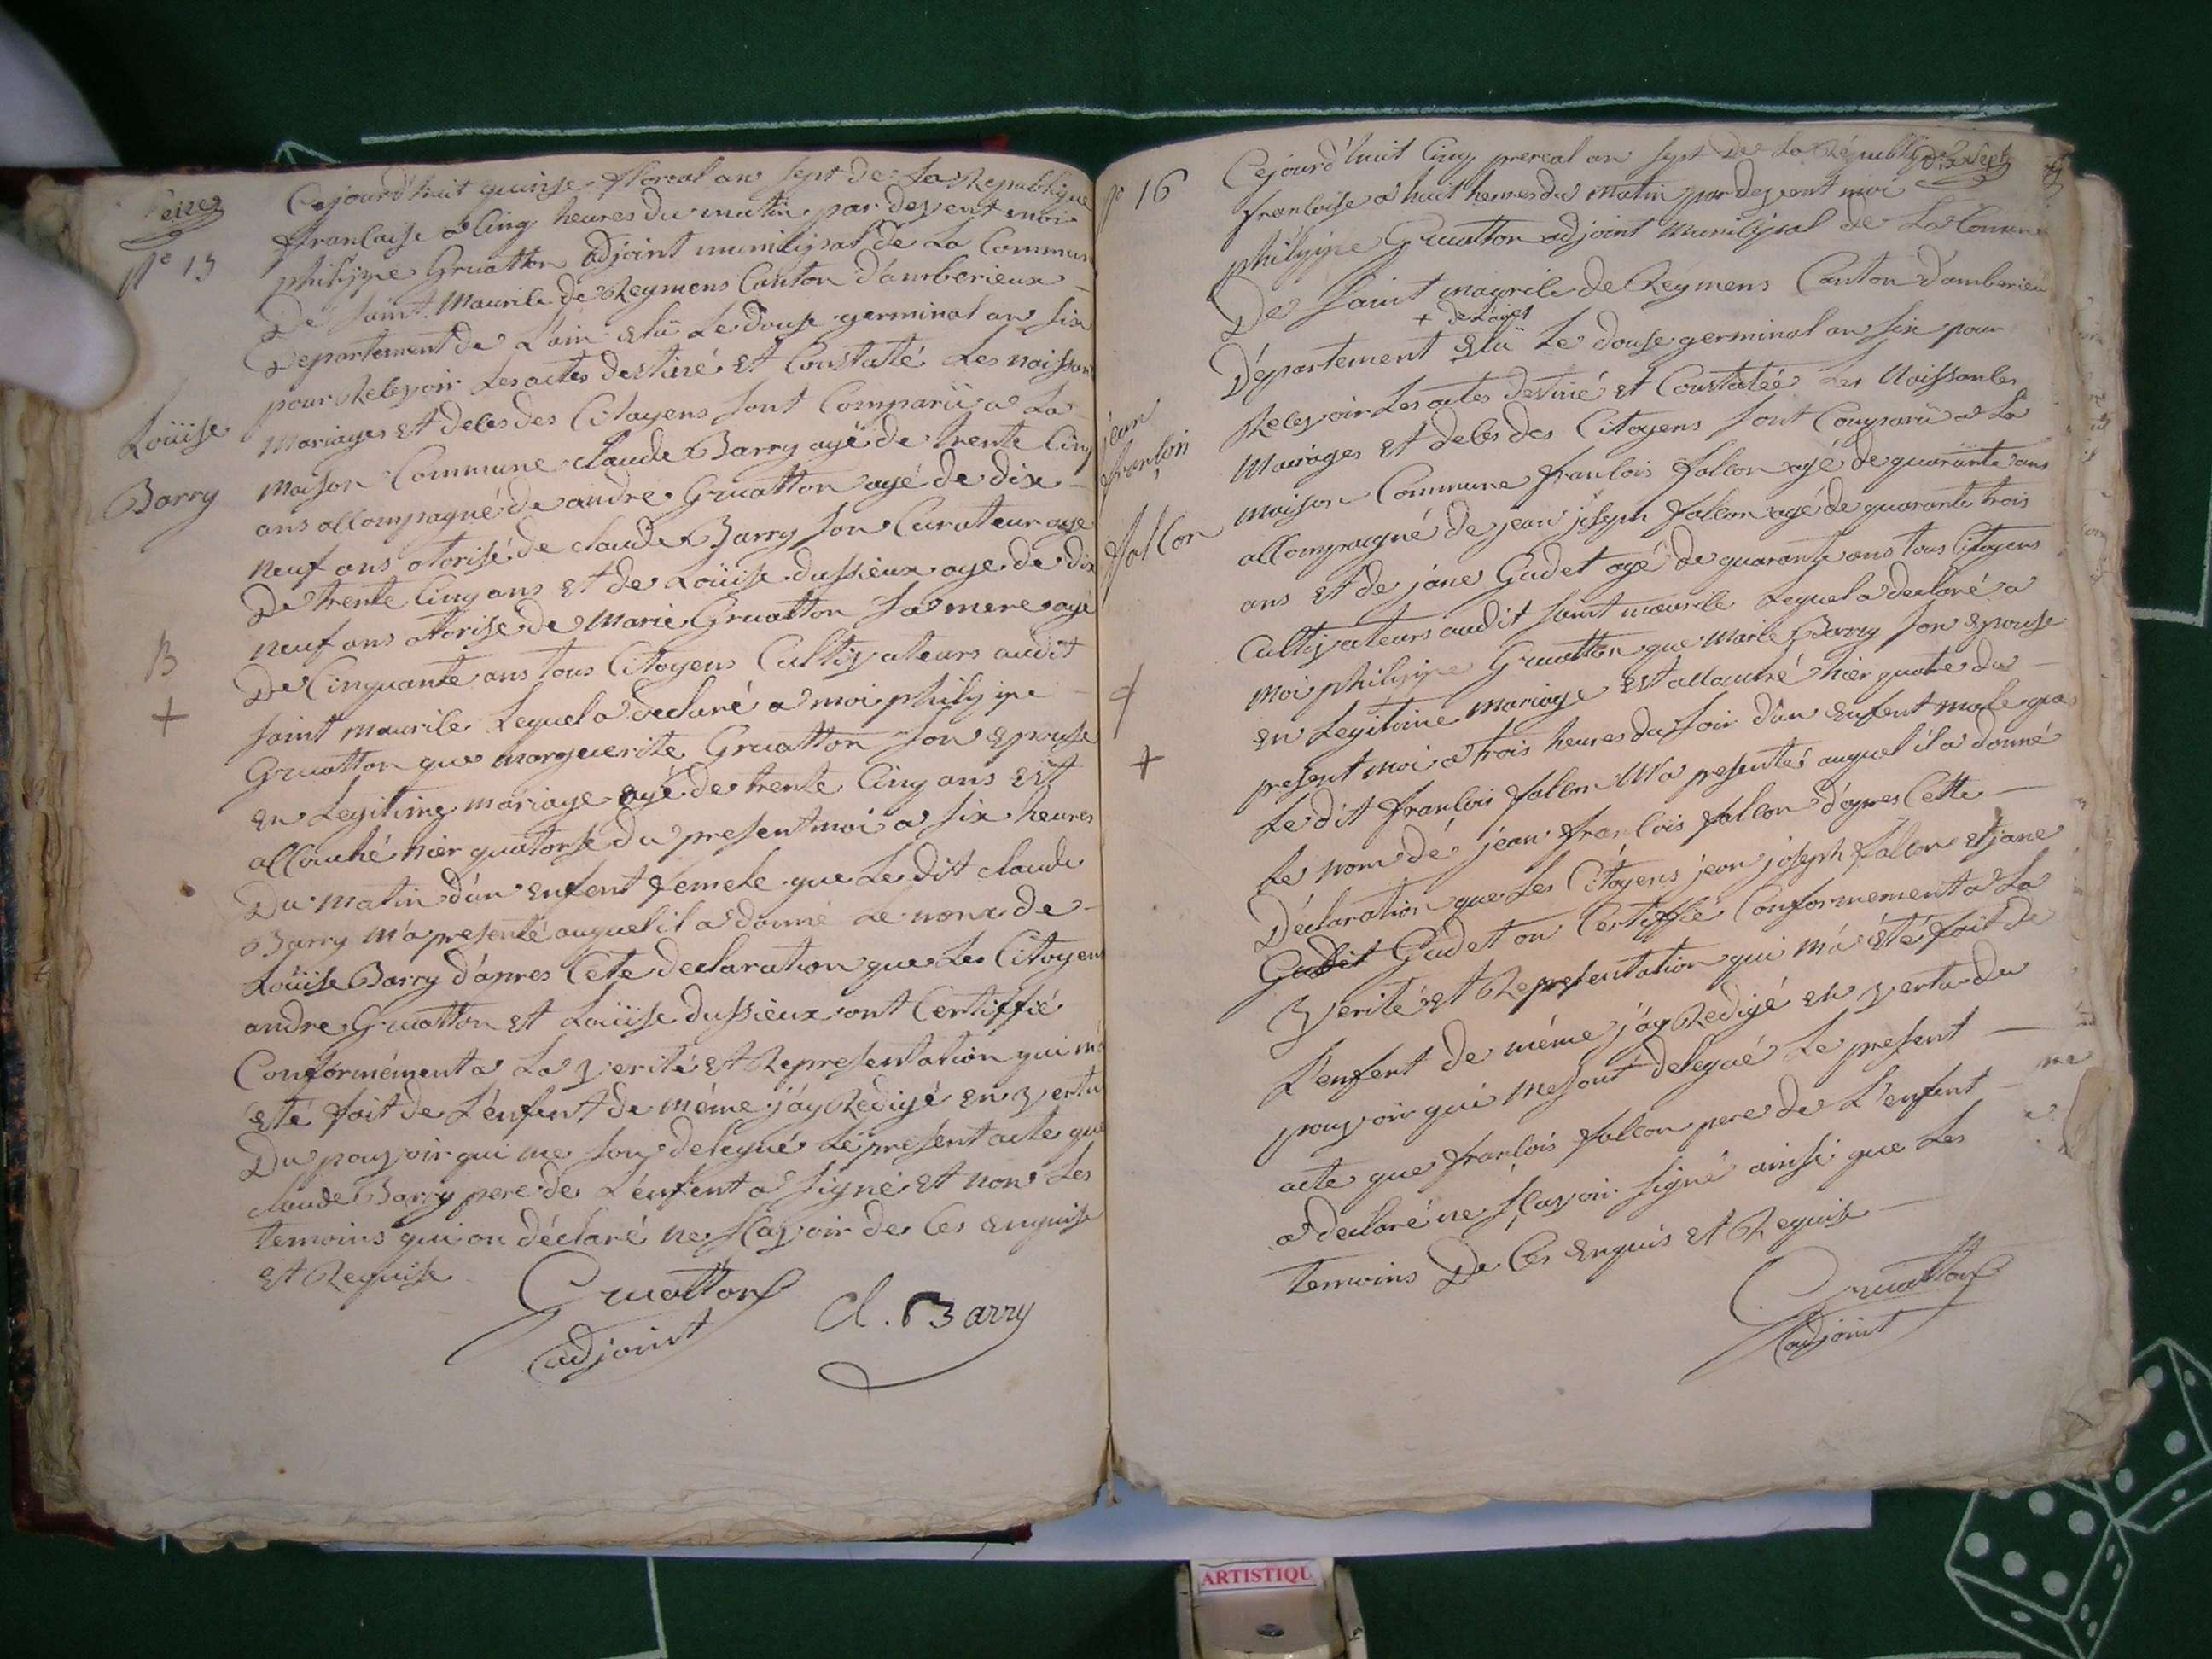 Seize
N° 15
Loüise
Barry
B
+
Cejourd'huit quinse floreal an sept de La Republique
francaise a Cinq heures du matin par devent moi
philippe Gruatton adjoint municipal de La Commun
De Saint Maurile de Reymens Canton d'amberieux
Departement de L'ain elü Le douse germinal an six
pour Recevoir Les actes destiné et Constaté Les naissan
Mariages et deces des Citoyens sont Comparü a La
Maison Commune claude Barry agé de trente Cinq
ans accompagné de andre Gruatton agé de dix
neuf ans otorisé de claude Barry son Curateur agé
De trente Cinq ans et de Loüise dussieux age de dix
neuf ans otorise de Marie Gruatton sa mere agé
De Cinquante ans tous Citoyens Cultivateurs audit
saint maurile Lequel a declaré a moi philippe
Gruatton que marguerite Gruatton son epouse
en Legitime mariage agé de trente Cinq ans est
accouché hier quatorse du present moi a six heures
Du matin d'un enfent femele que Le dit claude
Barry m'a presenté auquel il a donné Le nom de
Loüise Barry d'apres Cete declaration que Les Citoyens
andre Gruatton et Loüise dussieux ont Certiffié
Conformément a La verité et Representation qui m'a
eté fait de L'enfent de même j'ay Redigé en vertu
Du pouvoir qui me son delegué Le present acte que
claude Barry pere de L'enfent a signé et non Les
temoins qui on déclaré ne scavoir de Ces enquise
et Requise
Gruatton
adjoint
Cl. Barry
Dix Sept
N° 16
jean
françois
fallon
+
Cejourd'huit Cinq prereal an sept De La Républiq
francoise a huit heures du matin par devent moi
philippe Gruatton adjoint Municipal de La Commune
De saint maurile de Reymens Canton d'amberieu
+ de L'ain
Département elü Le douse germinal an six pour
Recevoir Les actes destiné et Constatéé Les Naissances
Mairages et deces des Citoyens sont Comparü a La
maison Commune francois fallon agé de quarante ans
accompagné de jean joseph fallon agé de quarante trois
ans et de jane Gudet agé de quarante ans tous Citoyens
Cultivateurs audit saint maurile Lequel a declaré a
moi philippe Gruatton que Marie Barry son epouse
en Legitime mariage est accouché hier quatre du
present moi a trois heures du soir d'un enfent male que
Le dit francois fallon M'a presentés auquel il a donné
Le nom de jean francois fallon d'apres Cette
Déclaration que Les Citoyens jean joseph fallon et jane
Gudet Gudet on Certiffié Conformement a La
verité et Representation qui m'a eté fait de
L'enfent de même j'ay Redigé en vertu du
pouvoir qui me sont delegué Le present
acte que francois fallon pere de L'enfent
a declaré ne sçavoir signé ainsi que Les
temoins De Ces enquis et Requise
Gruatton
adjoint
ARTISTIQU